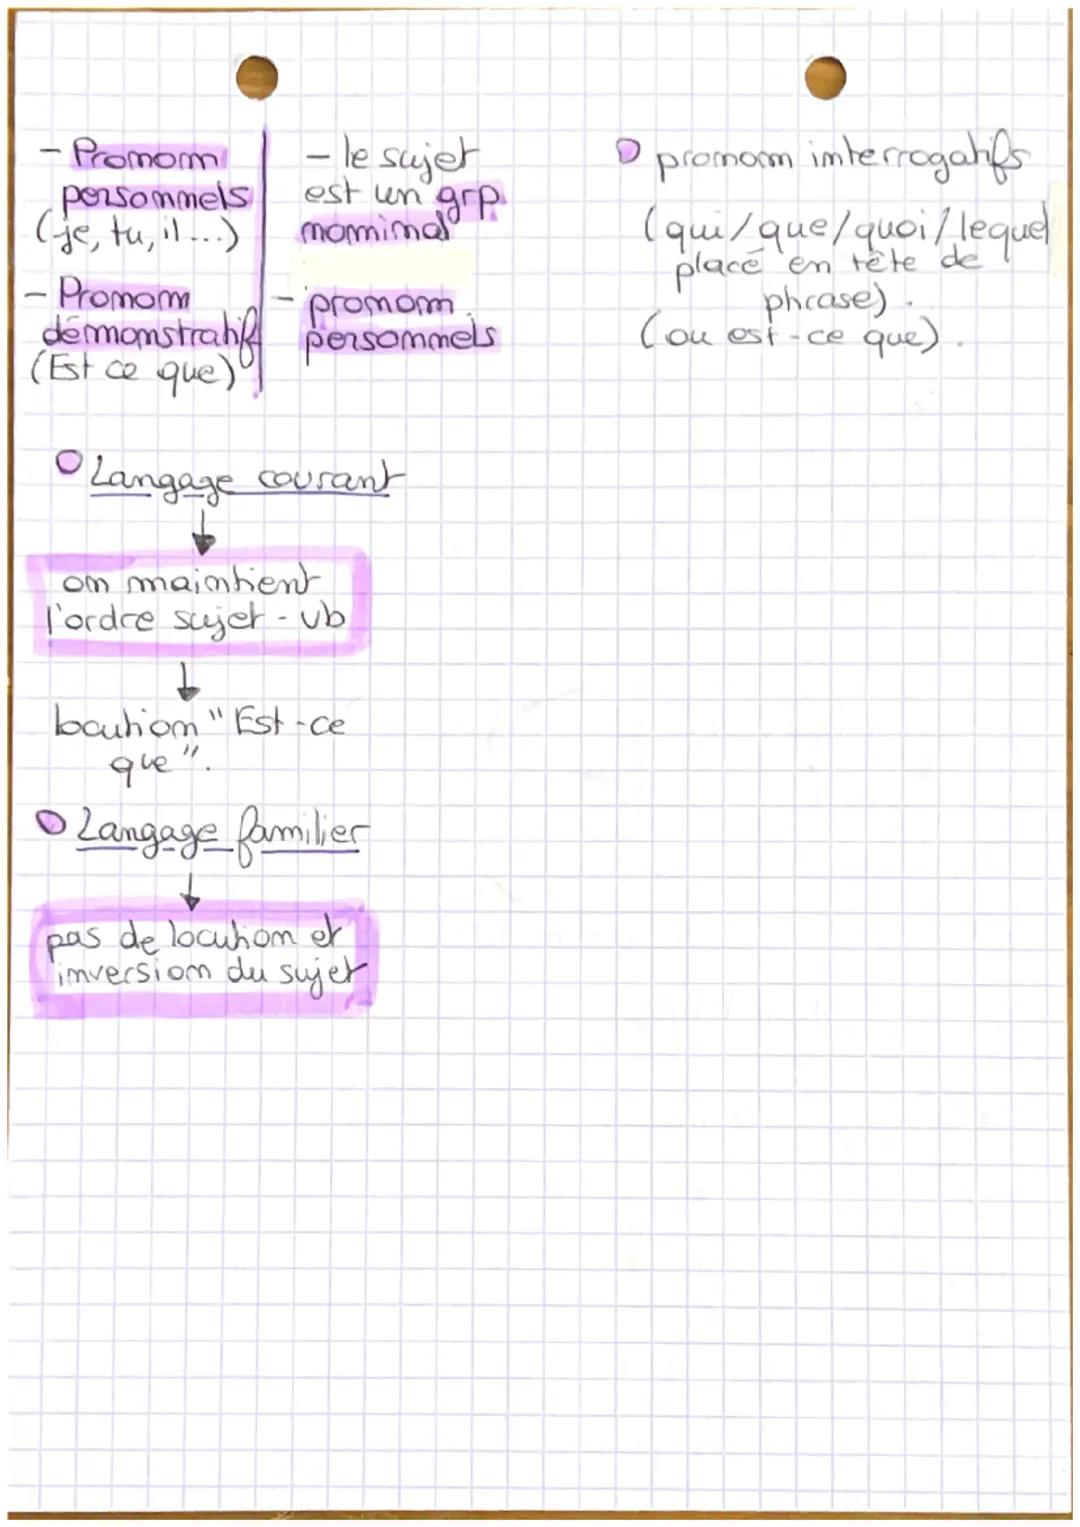 - Pronom
personnels
(je, tu, il ...)
- Pronom
démonstratif
(Est ce que)
- le sujet
est un grp
nominal
- pronom
personnels
pronom interrogatifs
(qui/que/quoi/lequel
placé en tête de
phrase).
(ou est-ce que).
Langage courant
on maintient
l'ordre sujet - vb
locution "Est-ce
que".
Langage familier
pas de locution et
inversion du sujet